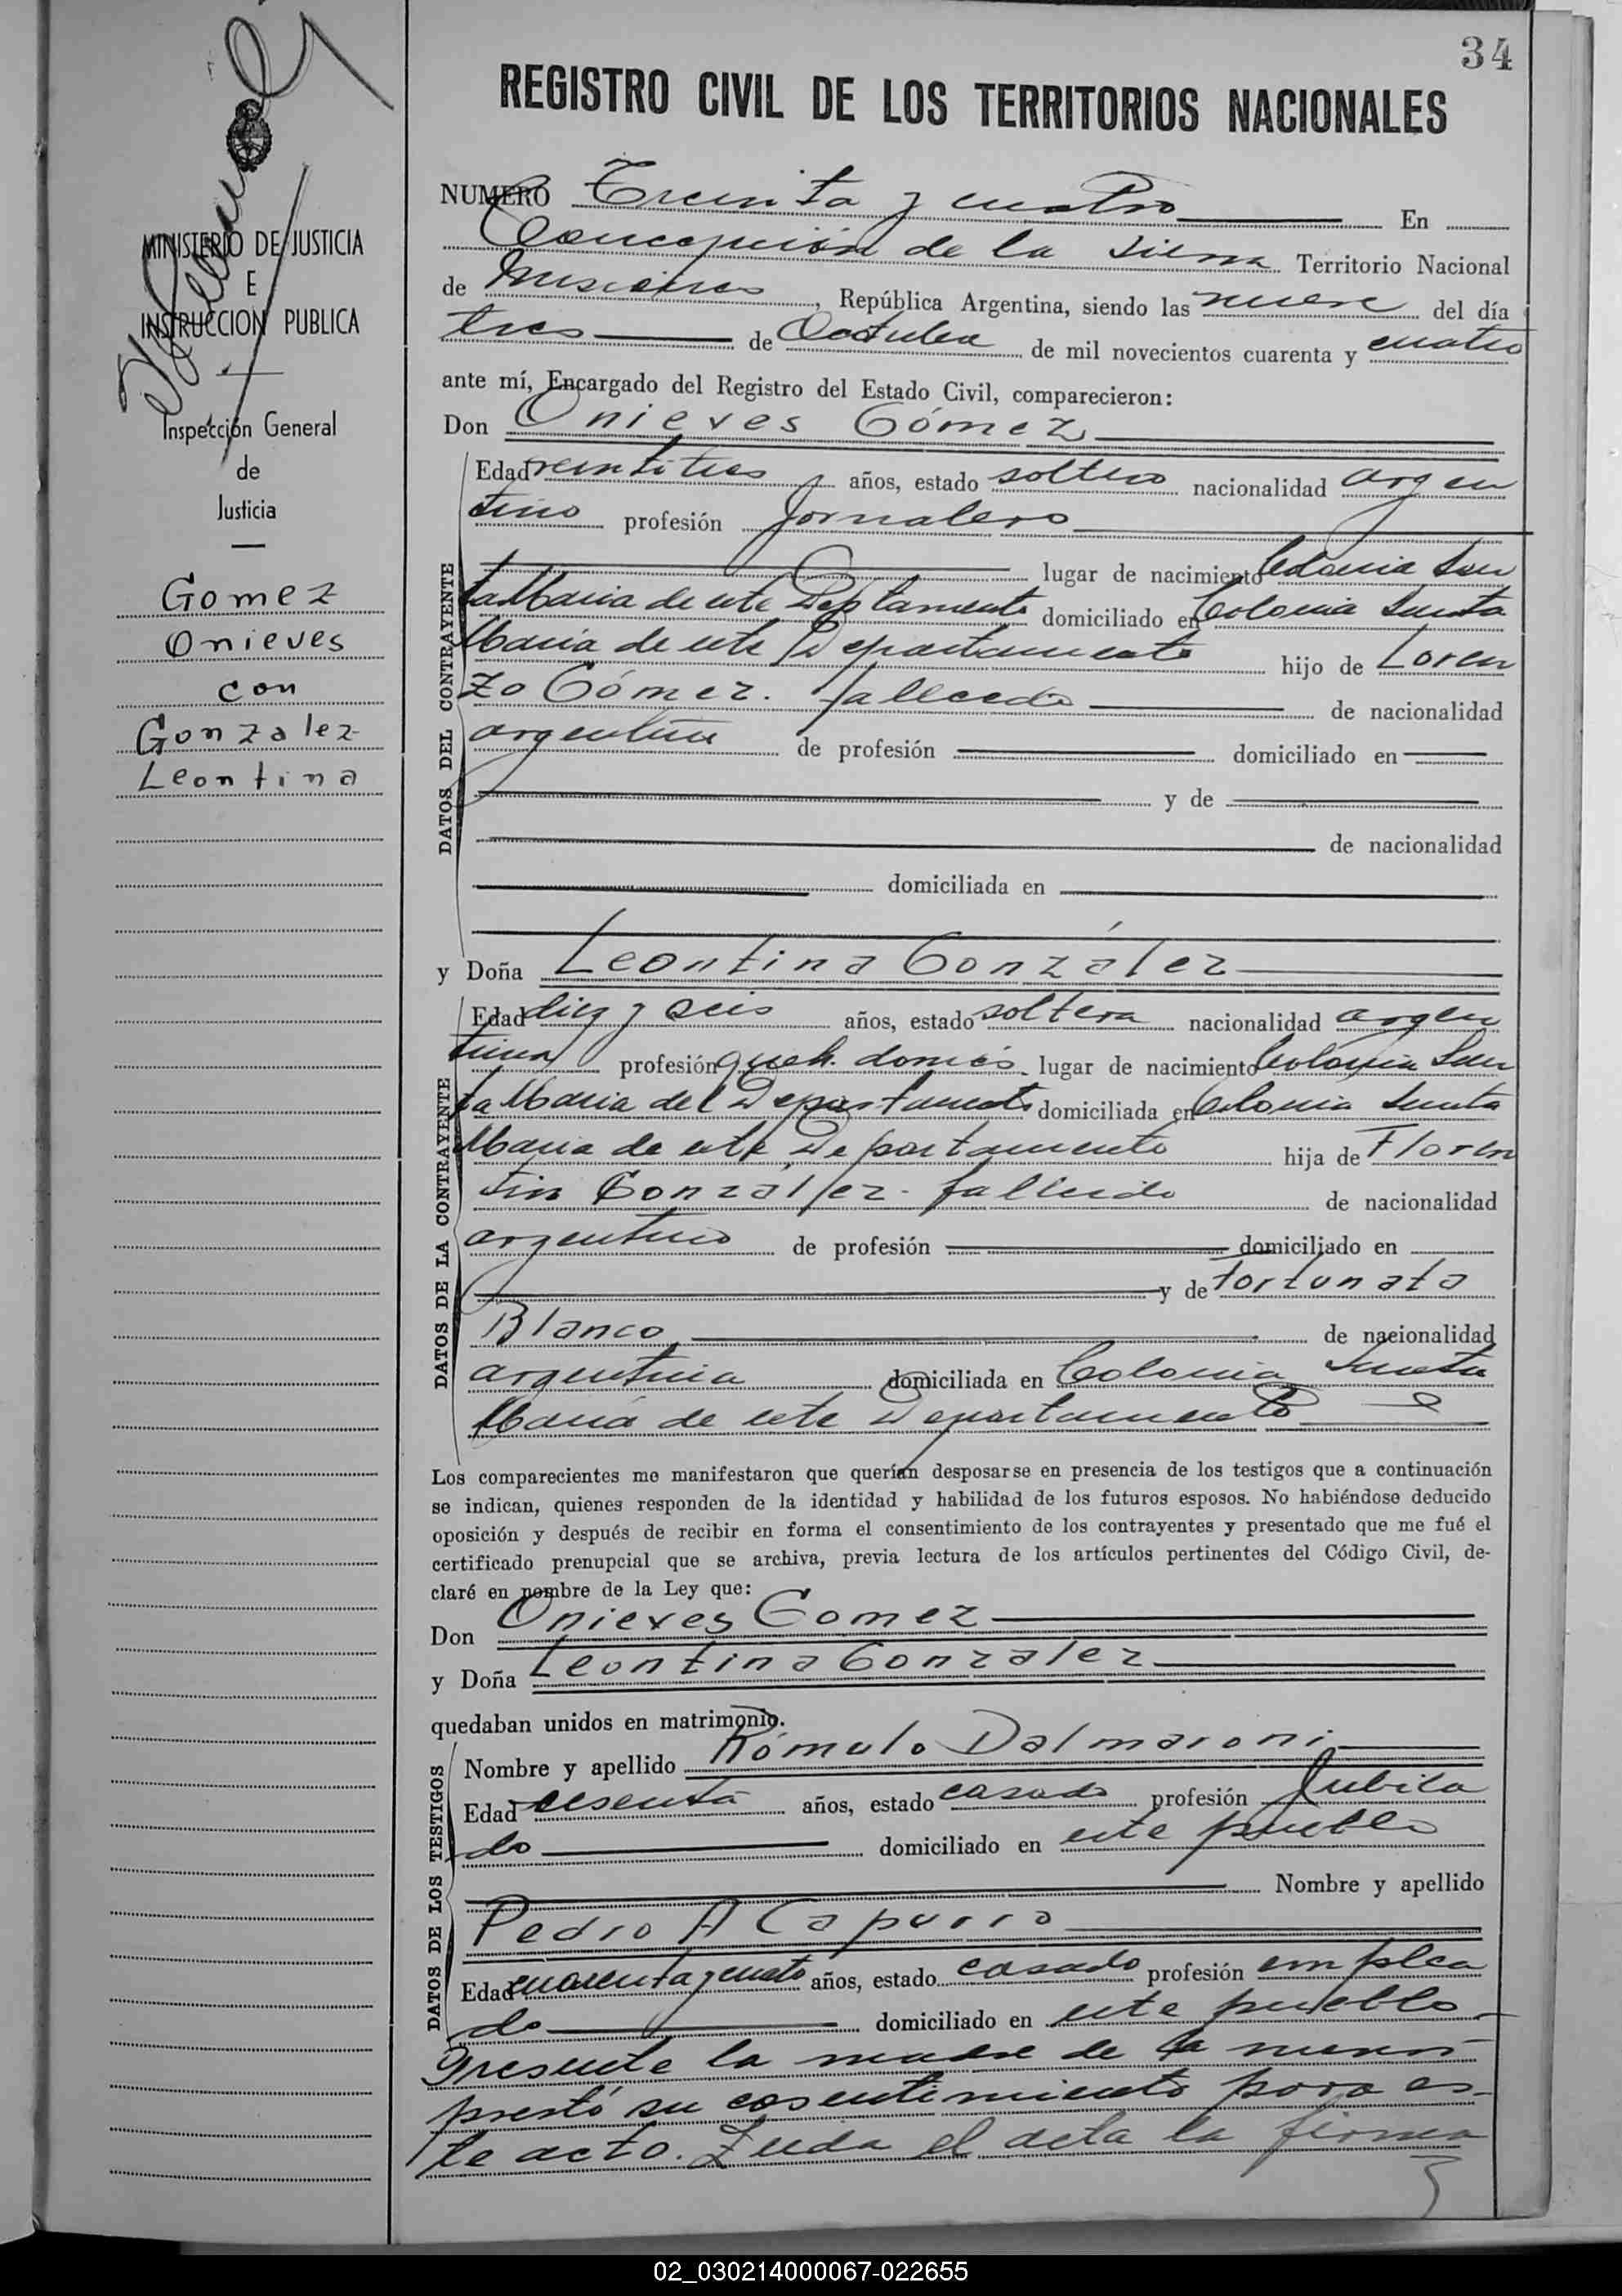 34
REGISTRO CIVIL DE LOS TERRITORIOS NACIONALES
MINISTERIO DE JUSTICIA
E
INSTRUCCION PUBLICA
Inspección General
de
Justicia
Gomez
Onieves
con
Gonzalez
Leontina
NUMERO Treinta y cuatro En
Concepción de la Sierra Territorio Nacional
de Misiones, República Argentina, siendo las nueve del día
tres de Octubre de mil novecientos cuarenta y cuatro
ante mí, Encargado del Registro del Estado Civil, comparecieron:
Don Onieves Gómez
DATOS DEL CONTRAYENTE
Edad veintitres años, estado soltero nacionalidad argen
tino profesión jornalero
lugar de nacimiento Colonia San
ta Maria de este Deptamento domiciliado en Colonia Santa
Maria de este Departamento hijo de Loren
zo Gómez. fallecido de nacionalidad
argentino de profesión domiciliado en
y de
de nacionalidad
domiciliada en
y Doña Leontina González
DATOS DE LA CONTRAYENTE
Edad diez y seis años, estado soltera nacionalidad argen
tina profesión queh. domés. lugar de nacimiento Colonia San
ta Maria del Departamento domiciliada en Colonia Santa
Maria de este Departamento hija de Floren
tin González. fallecido de nacionalidad
argentino de profesión domiciliado en
y de Fortunata
Blanco de nacionalidad
argentina domiciliada en Colonia Santa
Maria de este Departamento
Los comparecientes me manifestaron que querían desposarse en presencia de los testigos que a continuación
se indican, quienes responden de la identidad y habilidad de los futuros esposos. No habiéndose deducido
oposición y después de recibir en forma el consentimiento de los contrayentes y presentado que me fué el
certificado prenupcial que se archiva, previa lectura de los artículos pertinentes del Código Civil, de-
claré en nombre de la Ley que:
Don Onieves Gomez
y Doña Leontina Gonzalez
quedaban unidos en matrimonio.
DATOS DE LOS TESTIGOS
Nombre y apellido Rómulo Dalmaroni
Edad sesenta años, estado casado profesión Jubila
do domiciliado en este pueblo
Nombre y apellido
Pedro A Capurro
Edad cuarenta y cuatro años, estado casado profesión emplea
do domiciliado en este pueblo
Presente la madre de la menor
prestó su cosentimiento para es-
te acto. Leida el acta la firma
02_030214000067-022655